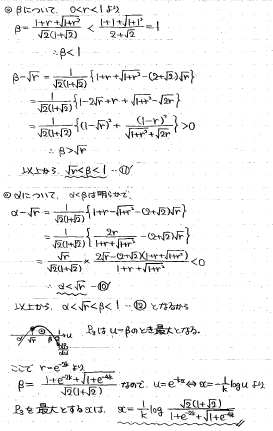 ◎ βについて、0<r<1より
β = (1+r+√(1+r²))/(√2(1+√2)) < (1+1+√(1+1²))/(2+√2) = 1
∴ β<1
β-√r = 1/(√2(1+√2)) {1+r+√(1+r²)-(2+√2)√r}
= 1/(√2(1+√2)) {1-2√r+r+√(1+r²)-√2r}
= 1/(√2(1+√2)) {(1-√r)²+(1-r)²/(√(1+r²)+√2r)} >0
∴ β>√r
以上から √r<β<1 …⑪
◎ αについて、α<βは明らかで、
α-√r = 1/(√2(1+√2)) {1+r-√(1+r²)-(2+√2)√r}
= 1/(√2(1+√2)) {2r/(1+r+√(1+r²))-(2+√2)√r}
= √r/(√2(1+√2)) × (2√r-(2+√2)(1+r+√(1+r²)))/(1+r+√(1+r²)) <0
∴ α<√r …⑩
以上から、α<√r<β<1 …⑫ となるから
α √r β 1 u
P₃は u=βのとき最大となる。
ここで r=e^{-2k}より
β = (1+e^{-2k}+√(1+e^{-4k}))/(√2(1+√2)) なので、u=e^{-kx}⇔x=-1/k log u より
P₃を最大とするxは、x = 1/k log √2(1+√2)/(1+e^{-2k}+√(1+e^{-4k}))